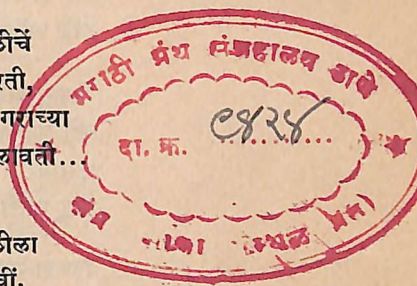 ठीचें
रती,
गराच्या
लावती...
ठीला
वीं.
मराठी ग्रंथ संग्रहालय ठाणे
दा. क्र. ९४२४
ग्रंथ